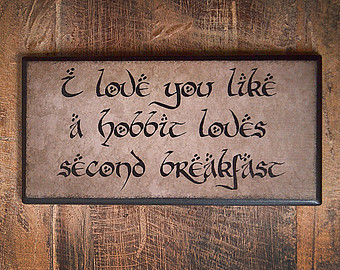 i love you like
a hobbit loves
second breakfast